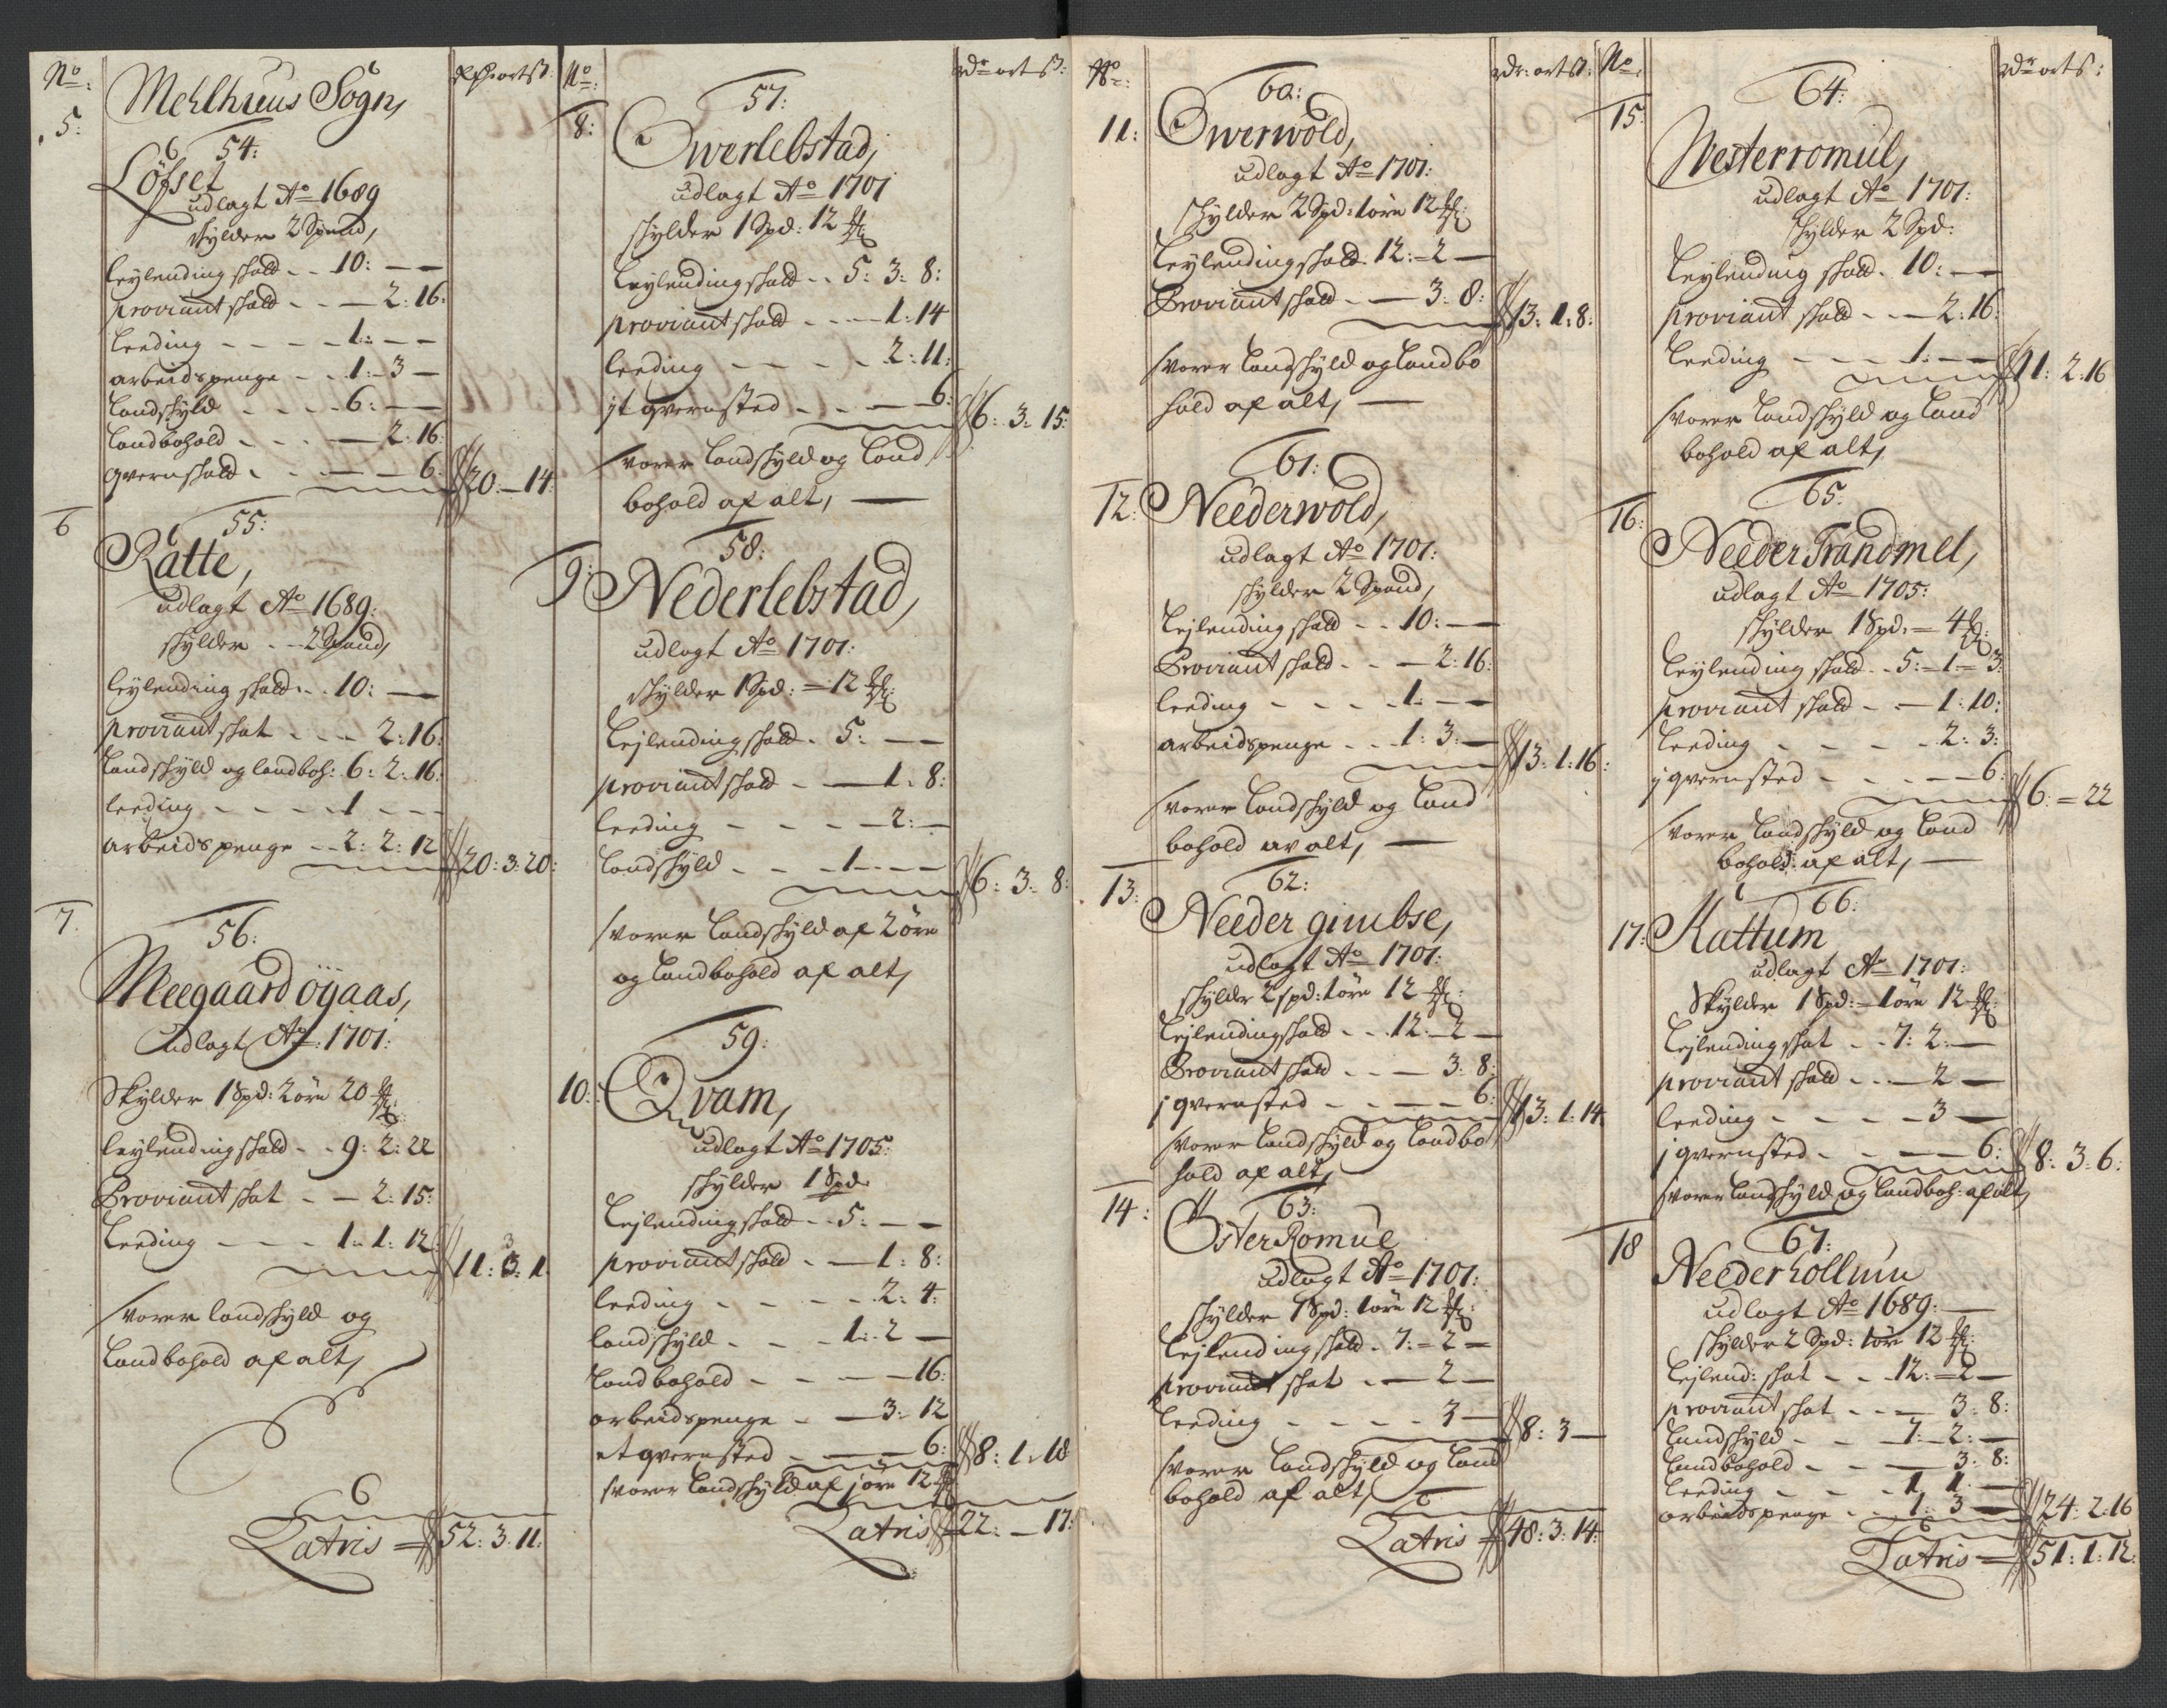 No:
Mehlhuus Sogn,
5:
54:
Löfset
udlagt Ao 1689
skylder 2 Spand,
leylending skatt - - 10: - -
proviant skatt - - - 2: 16:
leeding - - - - 1: - -
arbeidspenge - - 1: 3 -
landskyld - - - - 6: - -
landbohold - - - - 2: 16
qvernskatt - - - - 6: 20: - 14:
6
55:
Ratte,
udlagt Ao 1689:
skylder - - 2 Spand,
leylending skatt - - 10: -
proviant skat - - - 2: 16:
landskyld og landboh: 6: 2: 16:
leeding - - - - 1 - - -
arbeidspenge - - 2: 2: 12 20: 3: 20:
7
56:
Meegaard öÿaas,
Udlagt Ao: 1701:
Skylder 1 Spd: 2 öre 20
leylendingskatt - - 9: 2: 22
Proviant skat - - 2: 15:
Leeding - - - 1: 1: 12: 11: 3: 1:
svarer landskyld og
landbohold af alt,
Latris = 52: 3: 11:
No: rdr ort s:
8:
57:
Owerlebstad,
udlagt Ao 1701
skylder 1 Spd: 12
leylendingskatt - - 5: 3: 8:
proviant skatt - - - 1: 14
leeding - - - - 2: 11:
it qvernsted - - - - 6: 6: 3: 15:
svarer landskyld og land
bohold af alt, —
9:
58:
Nederlebstad,
udlagt Ao 1701:
skylder 1 Spd: = 12
leylendingskatt - 5: - -
proviant skatt - - 1: 8:
leeding - - - - 2: -
landskyld - - - 1 - - - 6: 3: 8:
svarer landskyld af 2 öre
og landbohold af alt,
59:
10: Qvam,
udlagt Ao 1705:
skylder 1 Spd:
leylendingskatt - - 5: - -
proviant skatt - - 1: 8:
leeding - - - - 2: 4:
landskyld - - - 1: 2 -
landbohold - - - - 16:
arbeidspenge - - 3: 12
et qvernsted - - - 6: 8: 1: 18
svarer landskyld af j öre 12
Latris 22: - 17:
No: rdr: ort s:
60:
11: Owerwold,
udlagt Ao 1701:
skylder 2 Spd: 1 öre 12
leylendingskatt 12: - 2 -
Proviant skatt - - 3: 8: 13: 1: 8:
svarer landskyld og landbo
hold af alt, —
61:
12: Neederwold,
udlagt Ao 1701:
skylder 2 Spand,
leylendingskatt - - 10: -
Proviant skatt - - - 2: 16:
leeding - - - - 1: - -
arbeidspenge - - 1: 3: - 13: 1: 16:
svarer landskyld og land
bohold av alt, —
62:
13: Needer gimbse,
udlagt Ao 1701:
skylder 2 spd: 1 öre 12
leylendingskatt - - 12: 2 -
Proviant skatt - - - 3: 8:
j qvernsted - - - - 6: 13: 1: 14
svarer landskyld og landbo
hold af alt,
63:
14: Öster Romül
Udlagt Ao 1701:
skylder 1 Spd: 1 öre 12
leylendingskatt - 7: - 2 -
proviant skat - - 2 -
leeding - - - - 3 - 8: 3 -
svarer landskyld og land
bohold af alt,
Latris = 48: 3: 14:
No: rdr ort s:
64:
15:
Westerromül,
udlagt Ao 1701:
skylder 2 Spd:
leylending skatt - 10: - -
proviant skatt - - - 2: 16:
leeding - - - 1: - - 11: 2: 16
svarer landskyld og land
bohold af alt,
65:
16: Needer Trandmel,
udlagt Ao 1705:
skylder 1 Spd: = 4
leylending skatt - - 5: - 1 - 3:
proviant skatt - - 1: 10:
leeding - - - - 2: 3:
j qvernsted - - - - 6: 6: = 22
svarer landskyld og land
bohold: af alt, —
66:
17: Kattum
udlagt Ao 1701:
Skylder 1 Spd: - 1 öre 12
leylending skat - - 7: 2: -
proviant skatt - - - 2 -
leeding - - - - 3 -
j qvernsted - - - - 6: 8: 3: 6:
svarer landskyld og landboh: af alt,
67:
18 Neederhollum
udlagt Ao 1689: —
skylder 2 Spd: 1 öre 12
leylend: skat - - 12: = 2 -
proviant skat - - - 3: 8:
landskyld - - 7: 2: -
landbohold - - - 3: 8:
leeding - - - 1 1: -
arbeidspenge - - 1: 3 - 24: 2: 16
Latris = 51: 1: 12: